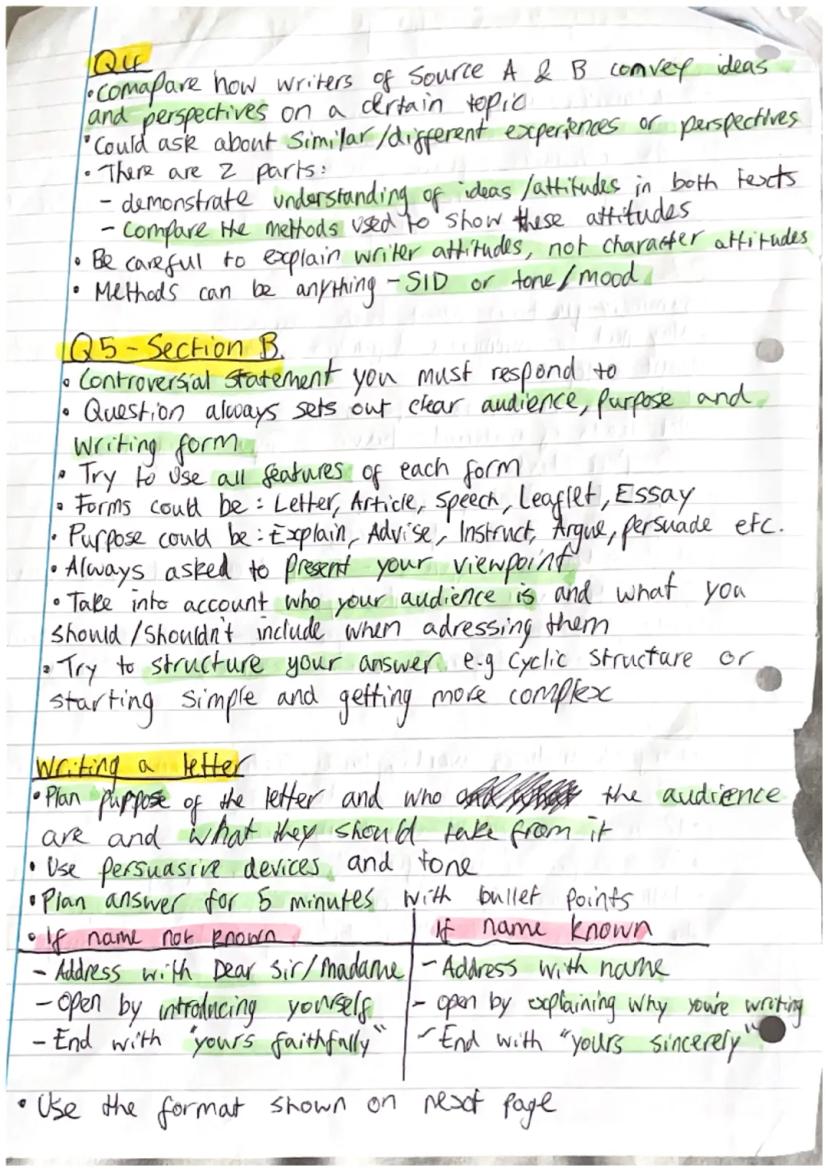 Q4
• comapare how writers of Source A & B convey ideas
and perspectives on a certain topic
• Could ask about Similar/different experiences or perspectives
• There are 2 parts:
- demonstrate understanding of ideas/attitudes in both texts
- Compare the methods used to show these attitudes
• Be careful to explain writer attitudes, not character attitudes
• Methods can be anything - SID or tone/mood
Q5 - Section B.
• Controversial statement you must respond to
• Question always sets out clear audience, purpose and
writing form
• Try to use all features of each form
• Forms could be: Letter, Article, Speech, Leaflet, Essay
• Purpose could be: Explain, Advise, Instruct, Argue, persuade etc.
• Always asked to present your viewpoint
• Take into account who your audience is and what you
should/shouldn't include when adressing them
• Try to structure your answer e.g cyclic structure or
starting simple and getting more complex
Writing a letter
• Plan purpose of the letter and who the audience
are and what they should take from it
• Use persuasive devices and tone
• Plan answer for 5 minutes with bullet points
• If name not known If name known
- Address with Dear Sir/Madame - Address with name
- Open by introducing yourself - open by explaining why you're writing
- End with "yours faithfully" - End with "yours sincerely"
• Use the format shown on next page